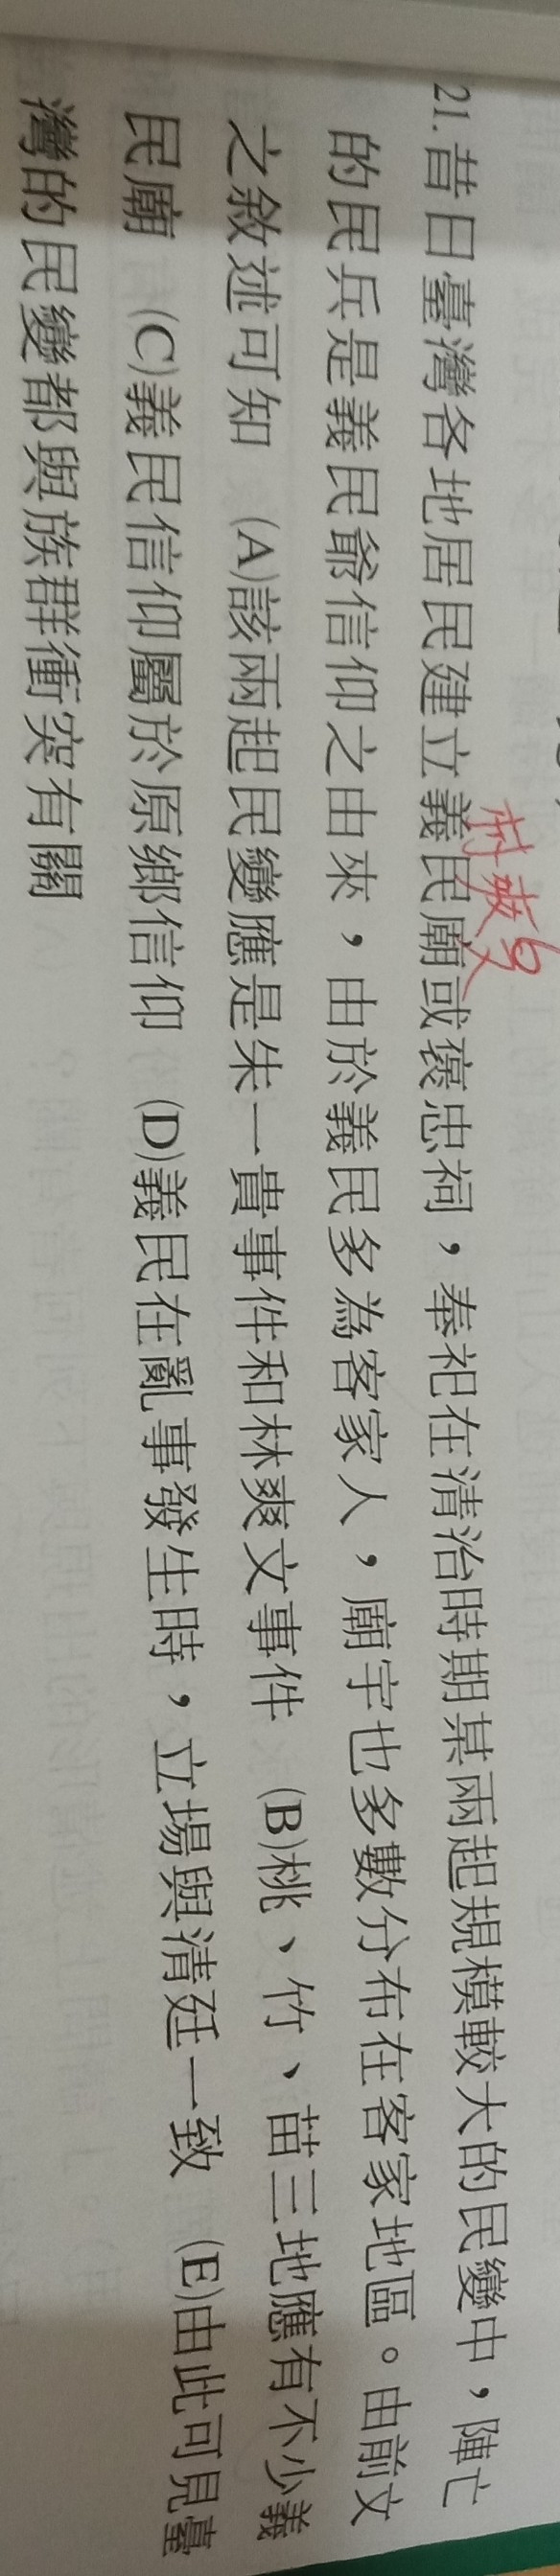 21. 昔日臺灣各地居民建立義民廟或褒忠祠，奉祀在清治時期某兩起規模較大的民變中，陣亡
的民兵是義民爺信仰之由來，由於義民多為客家人，廟宇也多數分布在客家地區。由前文
之敘述可知 (A)該兩起民變應是朱一貴事件和林爽文事件 (B)桃、竹、苗三地應有不少義
民廟 (C)義民信仰屬於原鄉信仰 (D)義民在亂事發生時，立場與清廷一致 (E)由此可見臺
灣的民變都與族群衝突有關